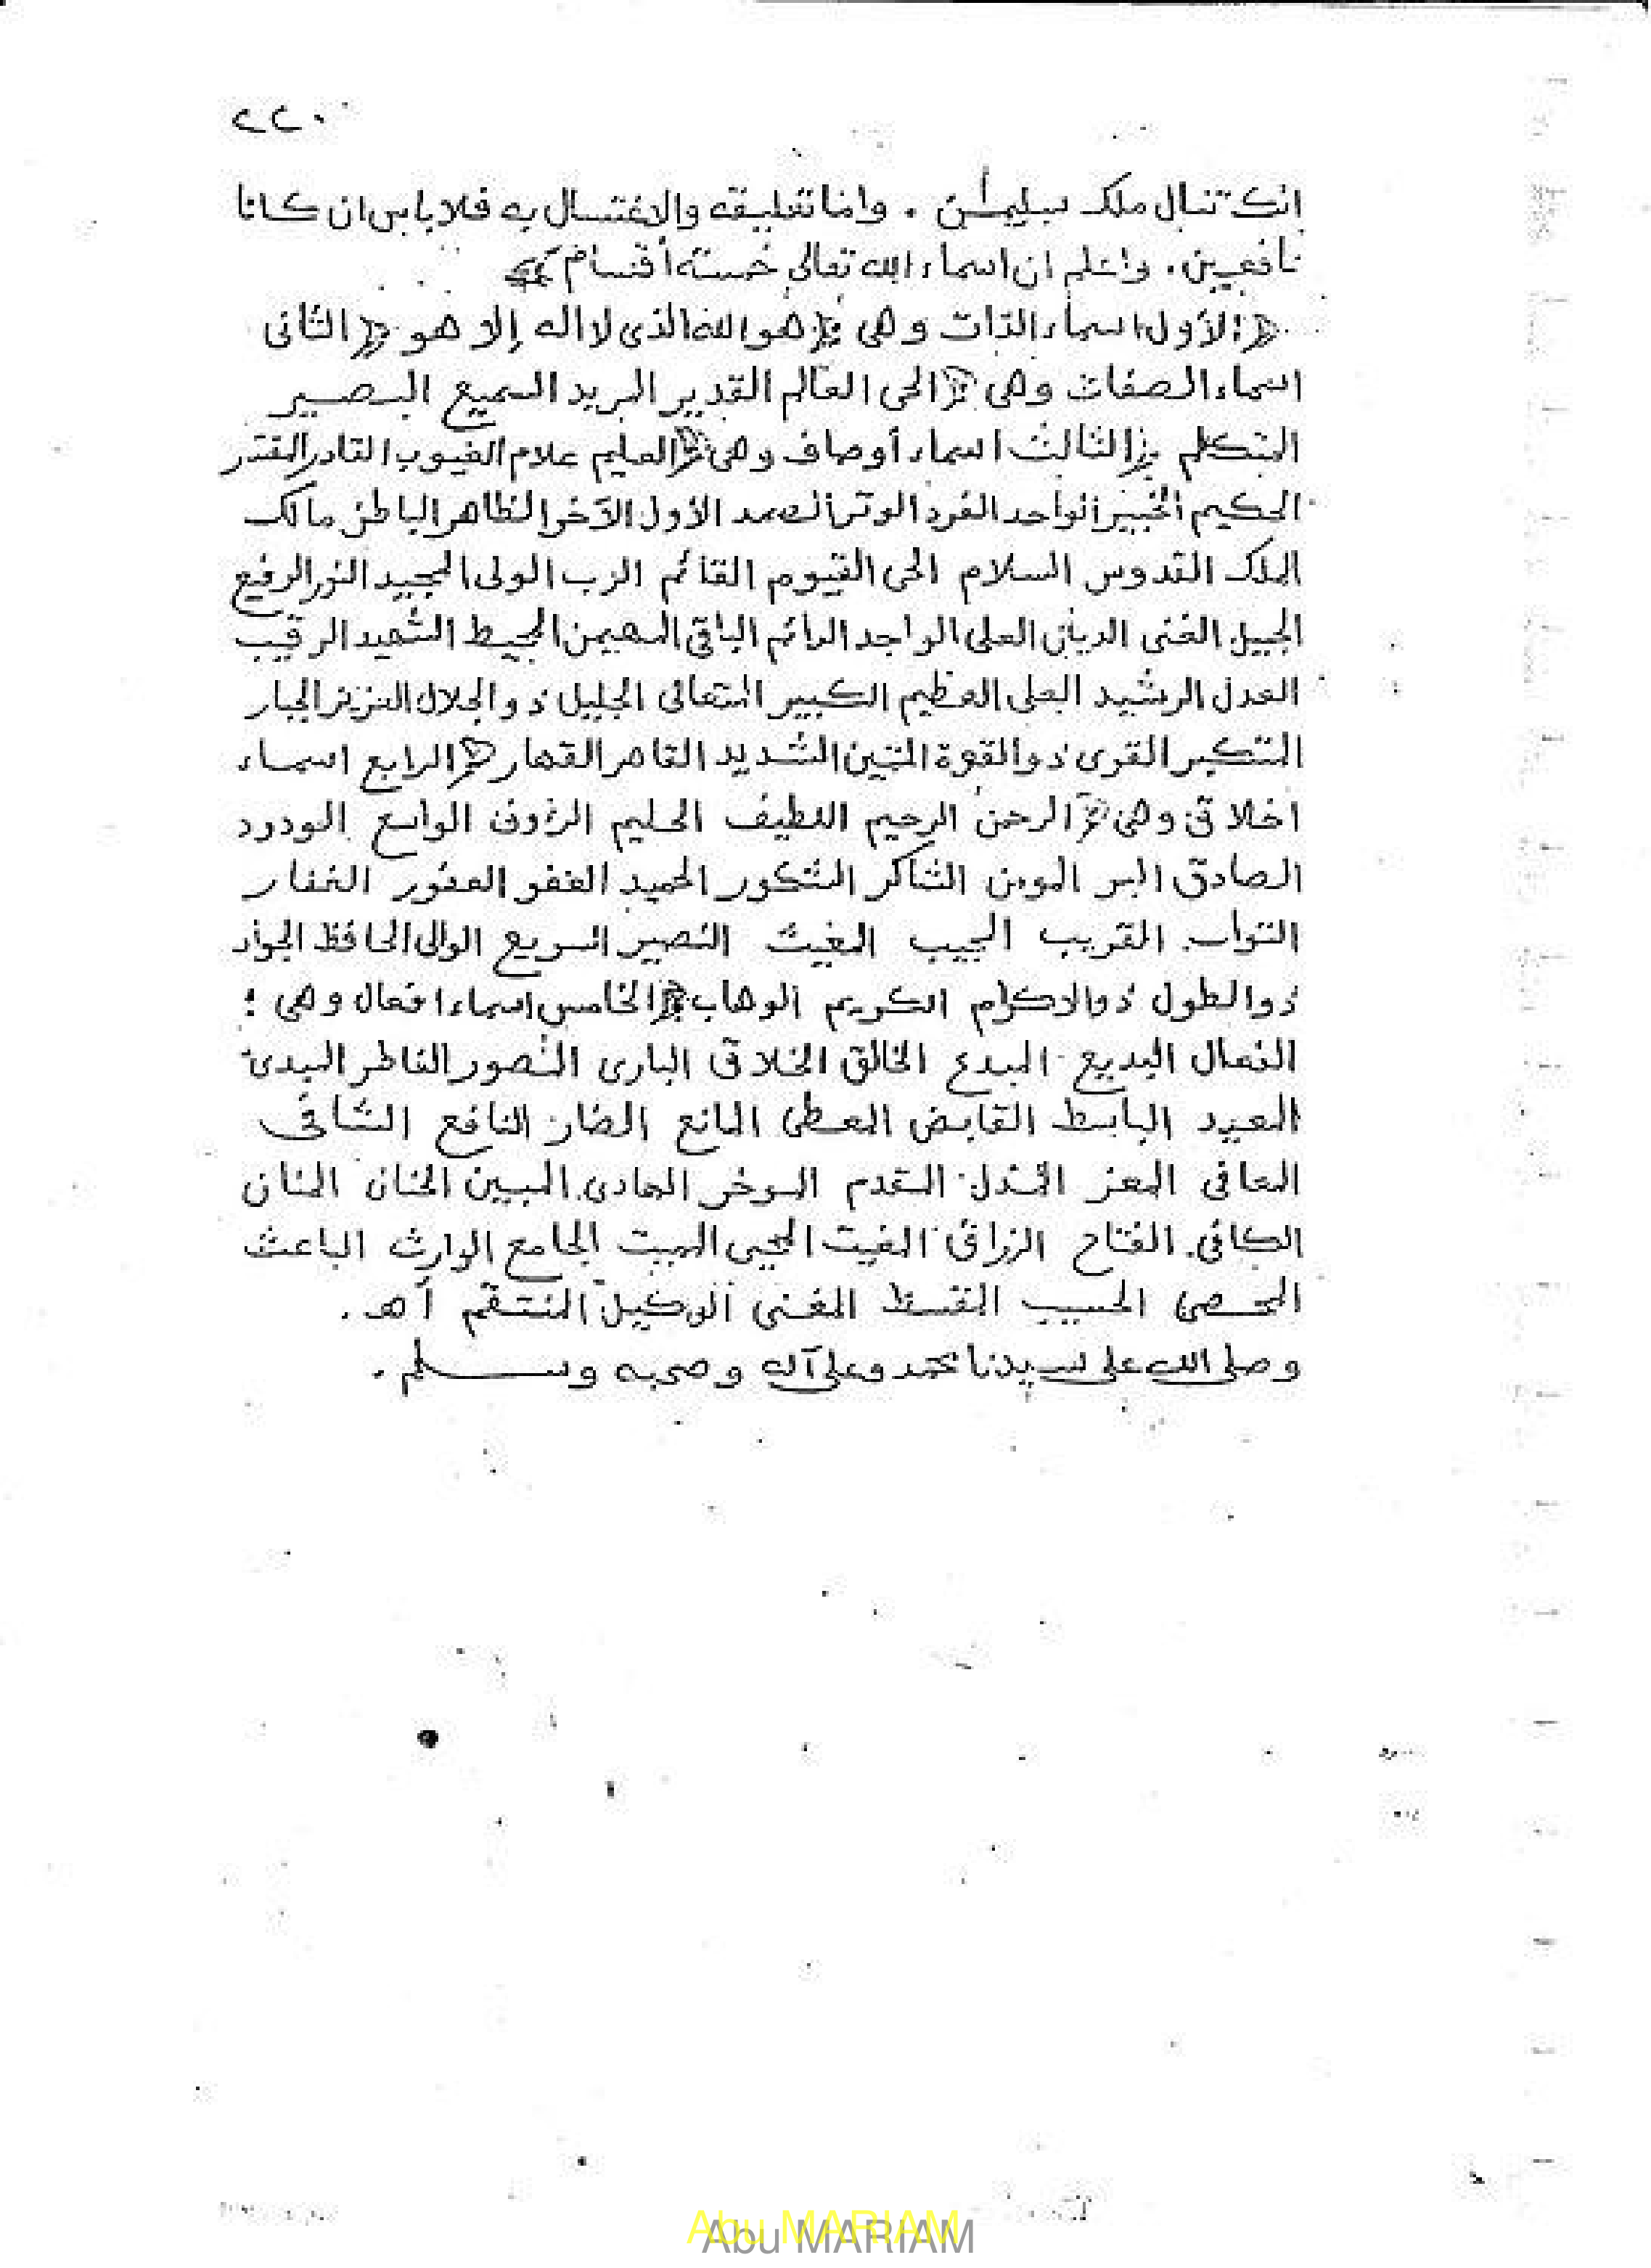 ٢٢٠
انك تنال ملك سليمان . واما تعليقه والاغتسال به فلا باس ان كانا
نافعين . واعلم ان اسماء الله تعالى خمسة أقسام
الأول اسماء الذات وهى هو الله الذى لا اله إلا هو الثانى
اسماء الصفات وهى الحى العالم القدير المريد السميع البصير
المتكلم الثالث اسماء أوصاف وهى العليم علام الغيوب القادر المقتدر
الحكيم الخبير الواحد الفرد الوتر الصمد الأول الآخر الظاهر الباطن مالك
الملك القدوس السلام الحى القيوم القائم الرب الولى المجيد النور الرفيع
الجميل الغنى الديان العلى الواجد الدائم الباقى المهيمن المحيط الشهيد الرقيب
العدل الرشيد العلى العظيم الكبير المتعالى الجليل ذو الجلال العزيز الجبار
المتكبر القوى ذو القوة المتين الشديد القاهر القهار الرابع اسماء
اخلاق وهى الرحمن الرحيم اللطيف الحليم الرؤوف الواسع الودود
الصادق البر المومن الشاكر الشكور الحميد العفو الغفور الغفار
التواب المقريب المجيب المغيث النصير السريع الوالى الحافظ الجواد
ذو الطول ذو الاكرام الكريم الوهاب الخامس اسماء افعال وهى :
الفعال البديع المبدع الخالق الخلاق البارى المصور الفاطر المبدئ
المعيد الباسط القابض المعطى المانع الضار النافع الشافى
المعافى المعز المذل المقدم الموخر الهادى المبين الحنان المنان
الكافى الفتاح الرزاق المغيث المحيى المميت الجامع الوارث الباعث
المحصى الحسيب المقسط المغنى الوكيل المنتقم آهـ .
وصلى الله على سيدنا محمد وعلى آله وصحبه وسلم .
Abu MARIAM